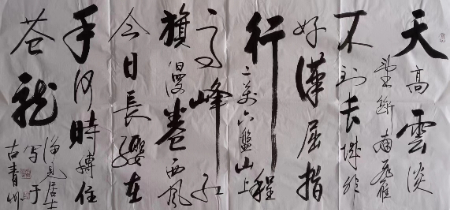 天高雲淡
望斷南飛雁
不到长城非
好漢屈指
行程
二萬六盤山上
高峰红
旗漫卷西风
今日長纓在
手何時縛住
苍龍
居士
写于
古青州